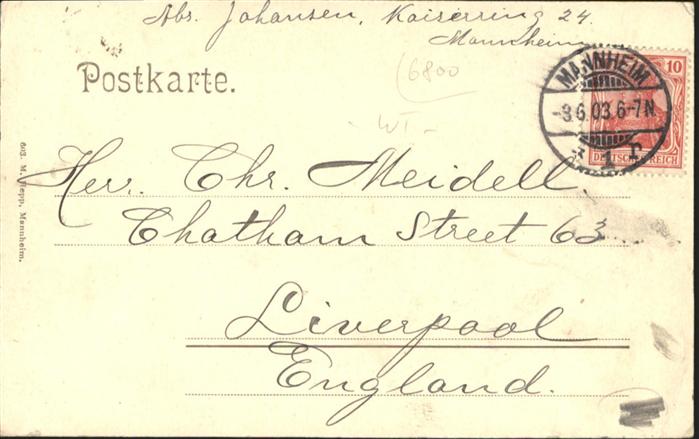 Abs. Johansen, Kaiserring 24.
Mannheim
Postkarte.
(6800
- WT -
10
MANNHEIM
-3.6.03.6-7N.
* 1 r
DEUTSCHES REICH
Herr. Chr. Meidell.
Chatham Street 63.
Liverpool
England.
603. M. Hepp, Mannheim.